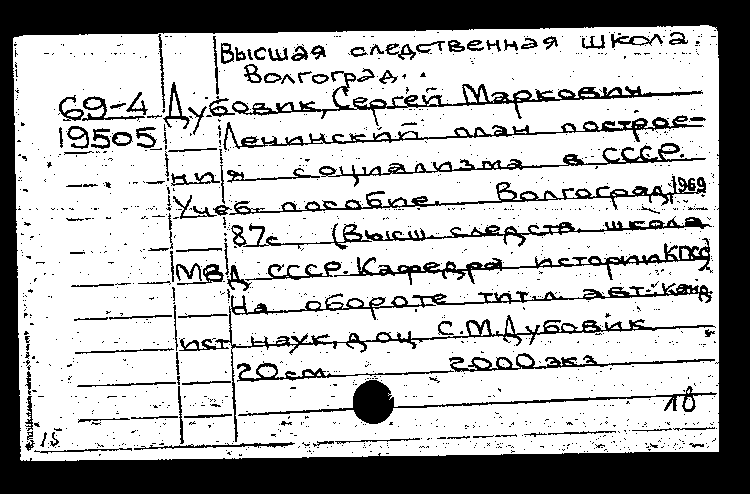 Высшая следственная школа.
Волгоград..
69-4 Дубовик, Сергей Маркович
19505 Ленинский план построе-
ния социализма в СССР.
Учеб. пособие. Волгоград, 1969
87с (Высш. следств. школа
МВД СССР. Кафедра истории КПСС)
На обороте тит. л. авт.: канд.
ист. наук, доц. С.М. Дубовик
20 см. 2000 экз
18
15